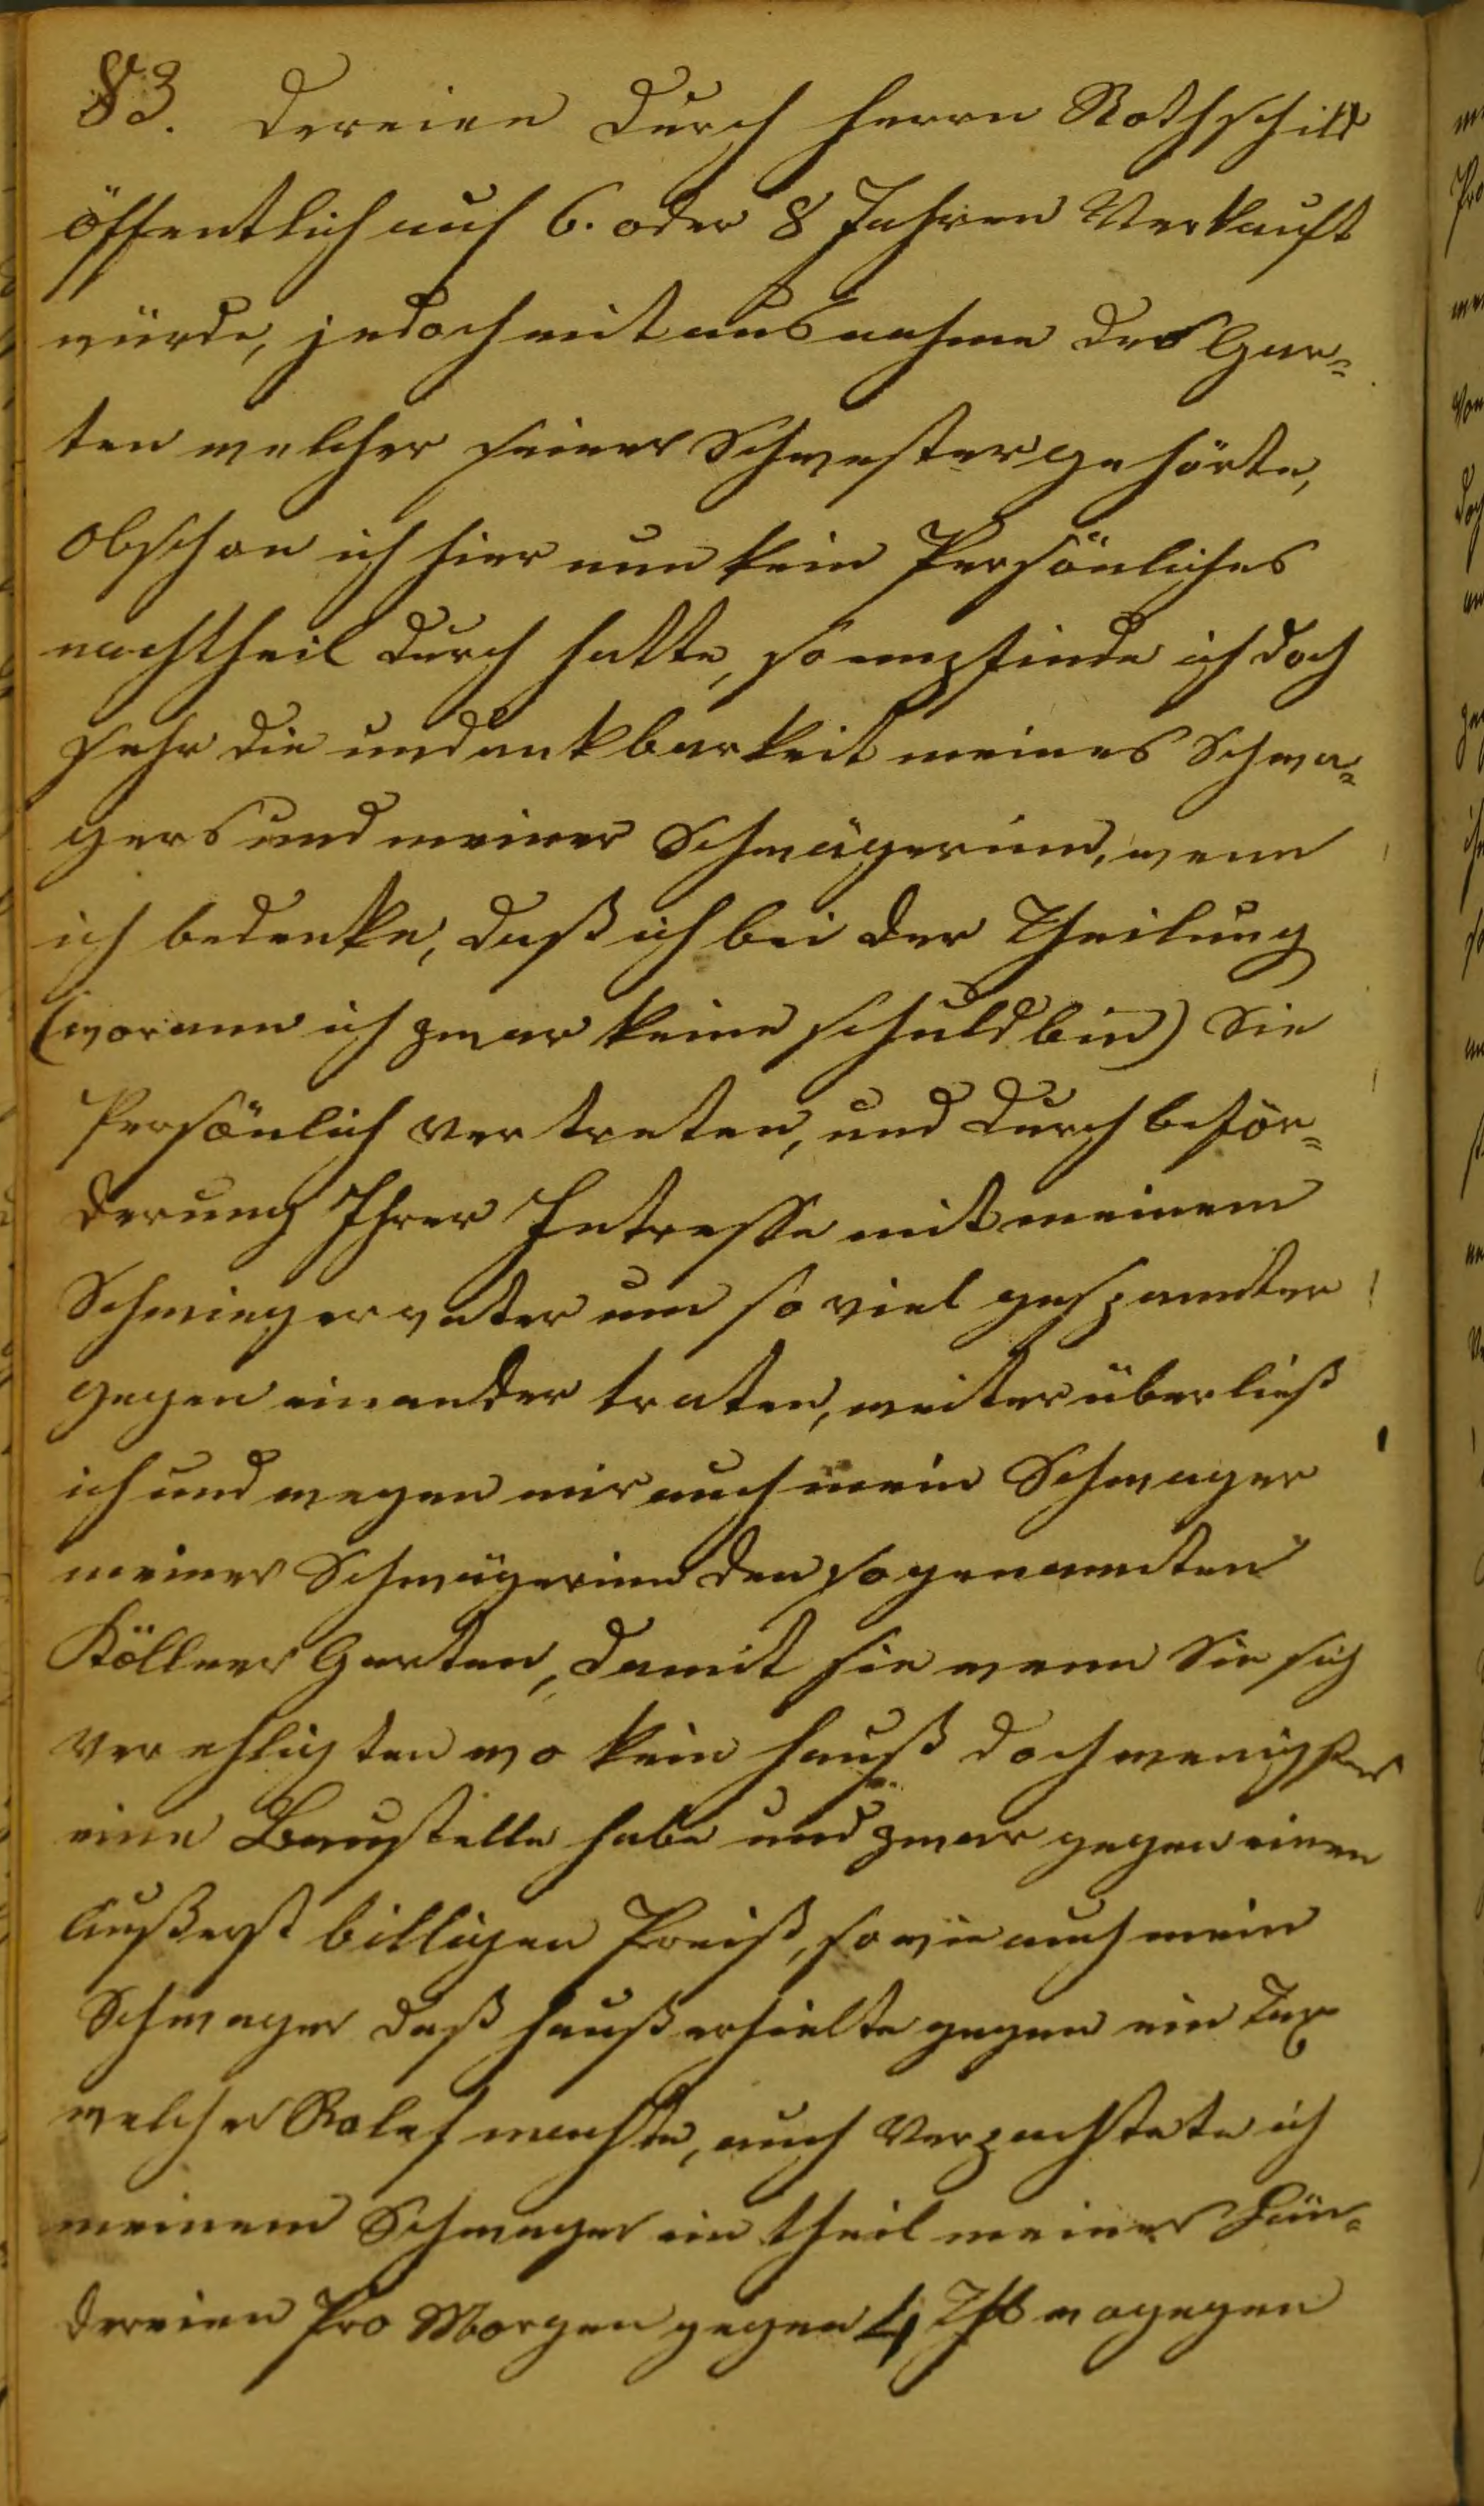 83. dereien durch Herrn Rothschild
öffentlich auf 6. oder 8 Jahren Verkauft
würde, jedoch mit ausnahme des Gar=
ten welcher seiner Schwester gehörte,
obschon ich hier nun kein Persönliches
nachtheil durch hatte, so empfinde ich doch
sehr die undankbarkeit meines Schwa=
gers und meiner Schwägerinn, wenn
ich bedenke, daß ich bei der Theilung
(worann ich zwar keine schuld bin) Sie
Persönlich vertreten, und durch beför=
derung Ihrer Intresse mit meinem
Schwiegervater um so viel gespannter
gegen einander traten, weiter überließ
ich und wegen mir auch mein Schwager
meiner Schwägerinn den sogenannten
Köllner Garten, damit sie wenn Sie sich
verehligten wo kein hauß doch wenigstens
eine Baustelle habe und zwar gegen einen
äußerst billigen Preiß, sowie auch mein
Schwager daß hauß erhielte gegen ein Tax
welcher Rolef machte, auch Verpachtete ich
meinem Schwager ein theil meiner Län=
dereien Pro Morgen gegen 4 wogegen